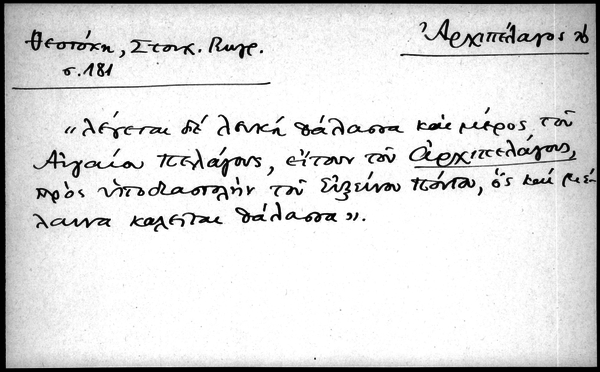 Θεοτόκη, Στοιχ. Γεωγρ.
σ. 181
Ἀρχιπέλαγος
"λέγεται δέ λευκή θάλασσα καί μέρος τοῦ
Αἰγαίου πελάγους, εἴτουν τοῦ ἀρχιπελάγους,
πρὸς ὑποδιαστολὴν τοῦ Εὐξείνου πόντου, ὅς καί μέ-
λαινα καλεῖται θάλασσα».